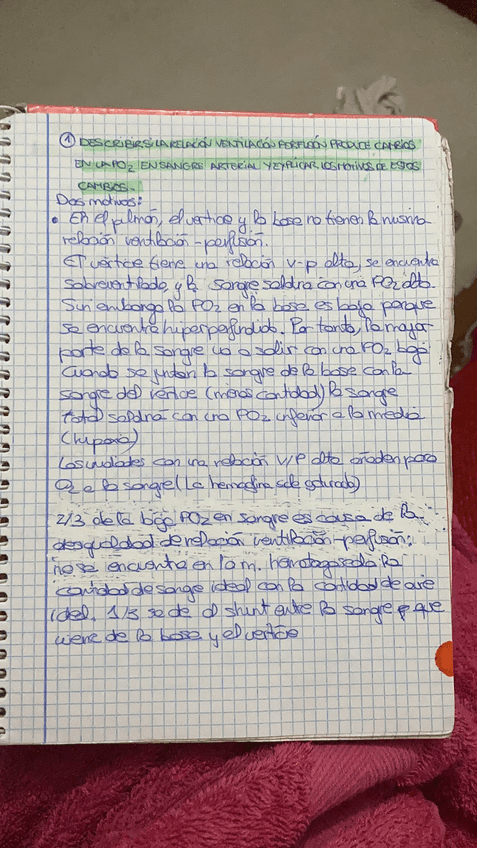 ① DESCRIBIR SI LA RELACIÓN VENTILACIÓN PERFUSIÓN PRODUCE CAMBIOS
EN LA PO₂ EN SANGRE ARTERIAL Y EXPLICAR LOS MOTIVOS DE ESTOS
CAMBIOS.
Dos motivos:
• En el pulmón, el vertice y la base no tienen la misma
relación ventilación-perfusión.
El vertice tiene una relación V-P alta, se encuentra
sobreventilado, y la sangre saldra con una PO₂ alta.
Sin embargo la PO₂ en la base es baja porque
se encuentra hiperperfundida. Por tanto, la mayor
parte de la sangre va a salir con una PO₂ baja
Cuando se juntan la sangre de la base con la
sangre del vertice (menos cantidad) la sangre
total saldrá con una PO₂ inferior a la media
(hipoxia)
Las unidades con una relación V/P alta añaden poco
O₂ a la sangre (La hemoglina sale saturada)
2/3 de la baja PO₂ en sangre es causa de la
desigualdad de relación ventilación-perfusión:
no se encuentra en la m.
cantidad de sangre ideal con la cantidad de aire
ideal. 1/3 se de el shunt entre la sangre que
viene de la base y el vertice